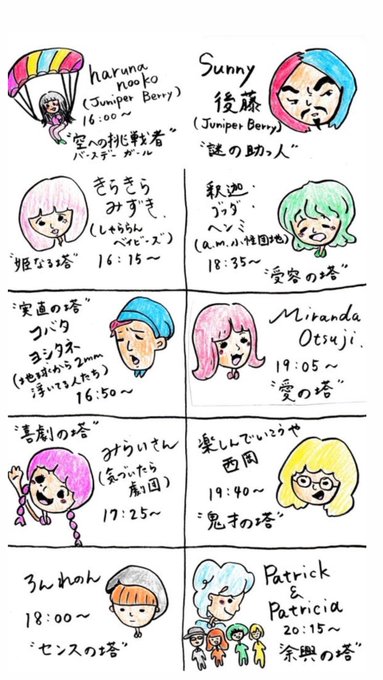 haruna
nooko
(Juniper Berry)
16:00〜
"空への挑戦者"
バースデーガール
Sunny
後藤
(Juniper Berry)
"謎の助っ人"
きらきら
みずき
(しゃららん
ベイビーズ)
"姫なる塔" 16:15〜
釈迦・
ゴッダ・
ヘンミ
(a.m.小性団地)
18:35〜
"受容の塔"
"実直の塔"
コバタ
ヨシタネ
(地球から2mm
浮いてる人たち)
16:50〜
Miranda
Otsuji.
19:05〜
"愛の塔"
"喜劇の塔"
みらいさん
(気づいたら
劇団)
17:25〜
楽しんでいこうや
西岡
19:40〜
"鬼才の塔"
ろんれのん
18:00〜
"センスの塔"
Patrick
&
Patricia
20:15〜
"余興の塔"